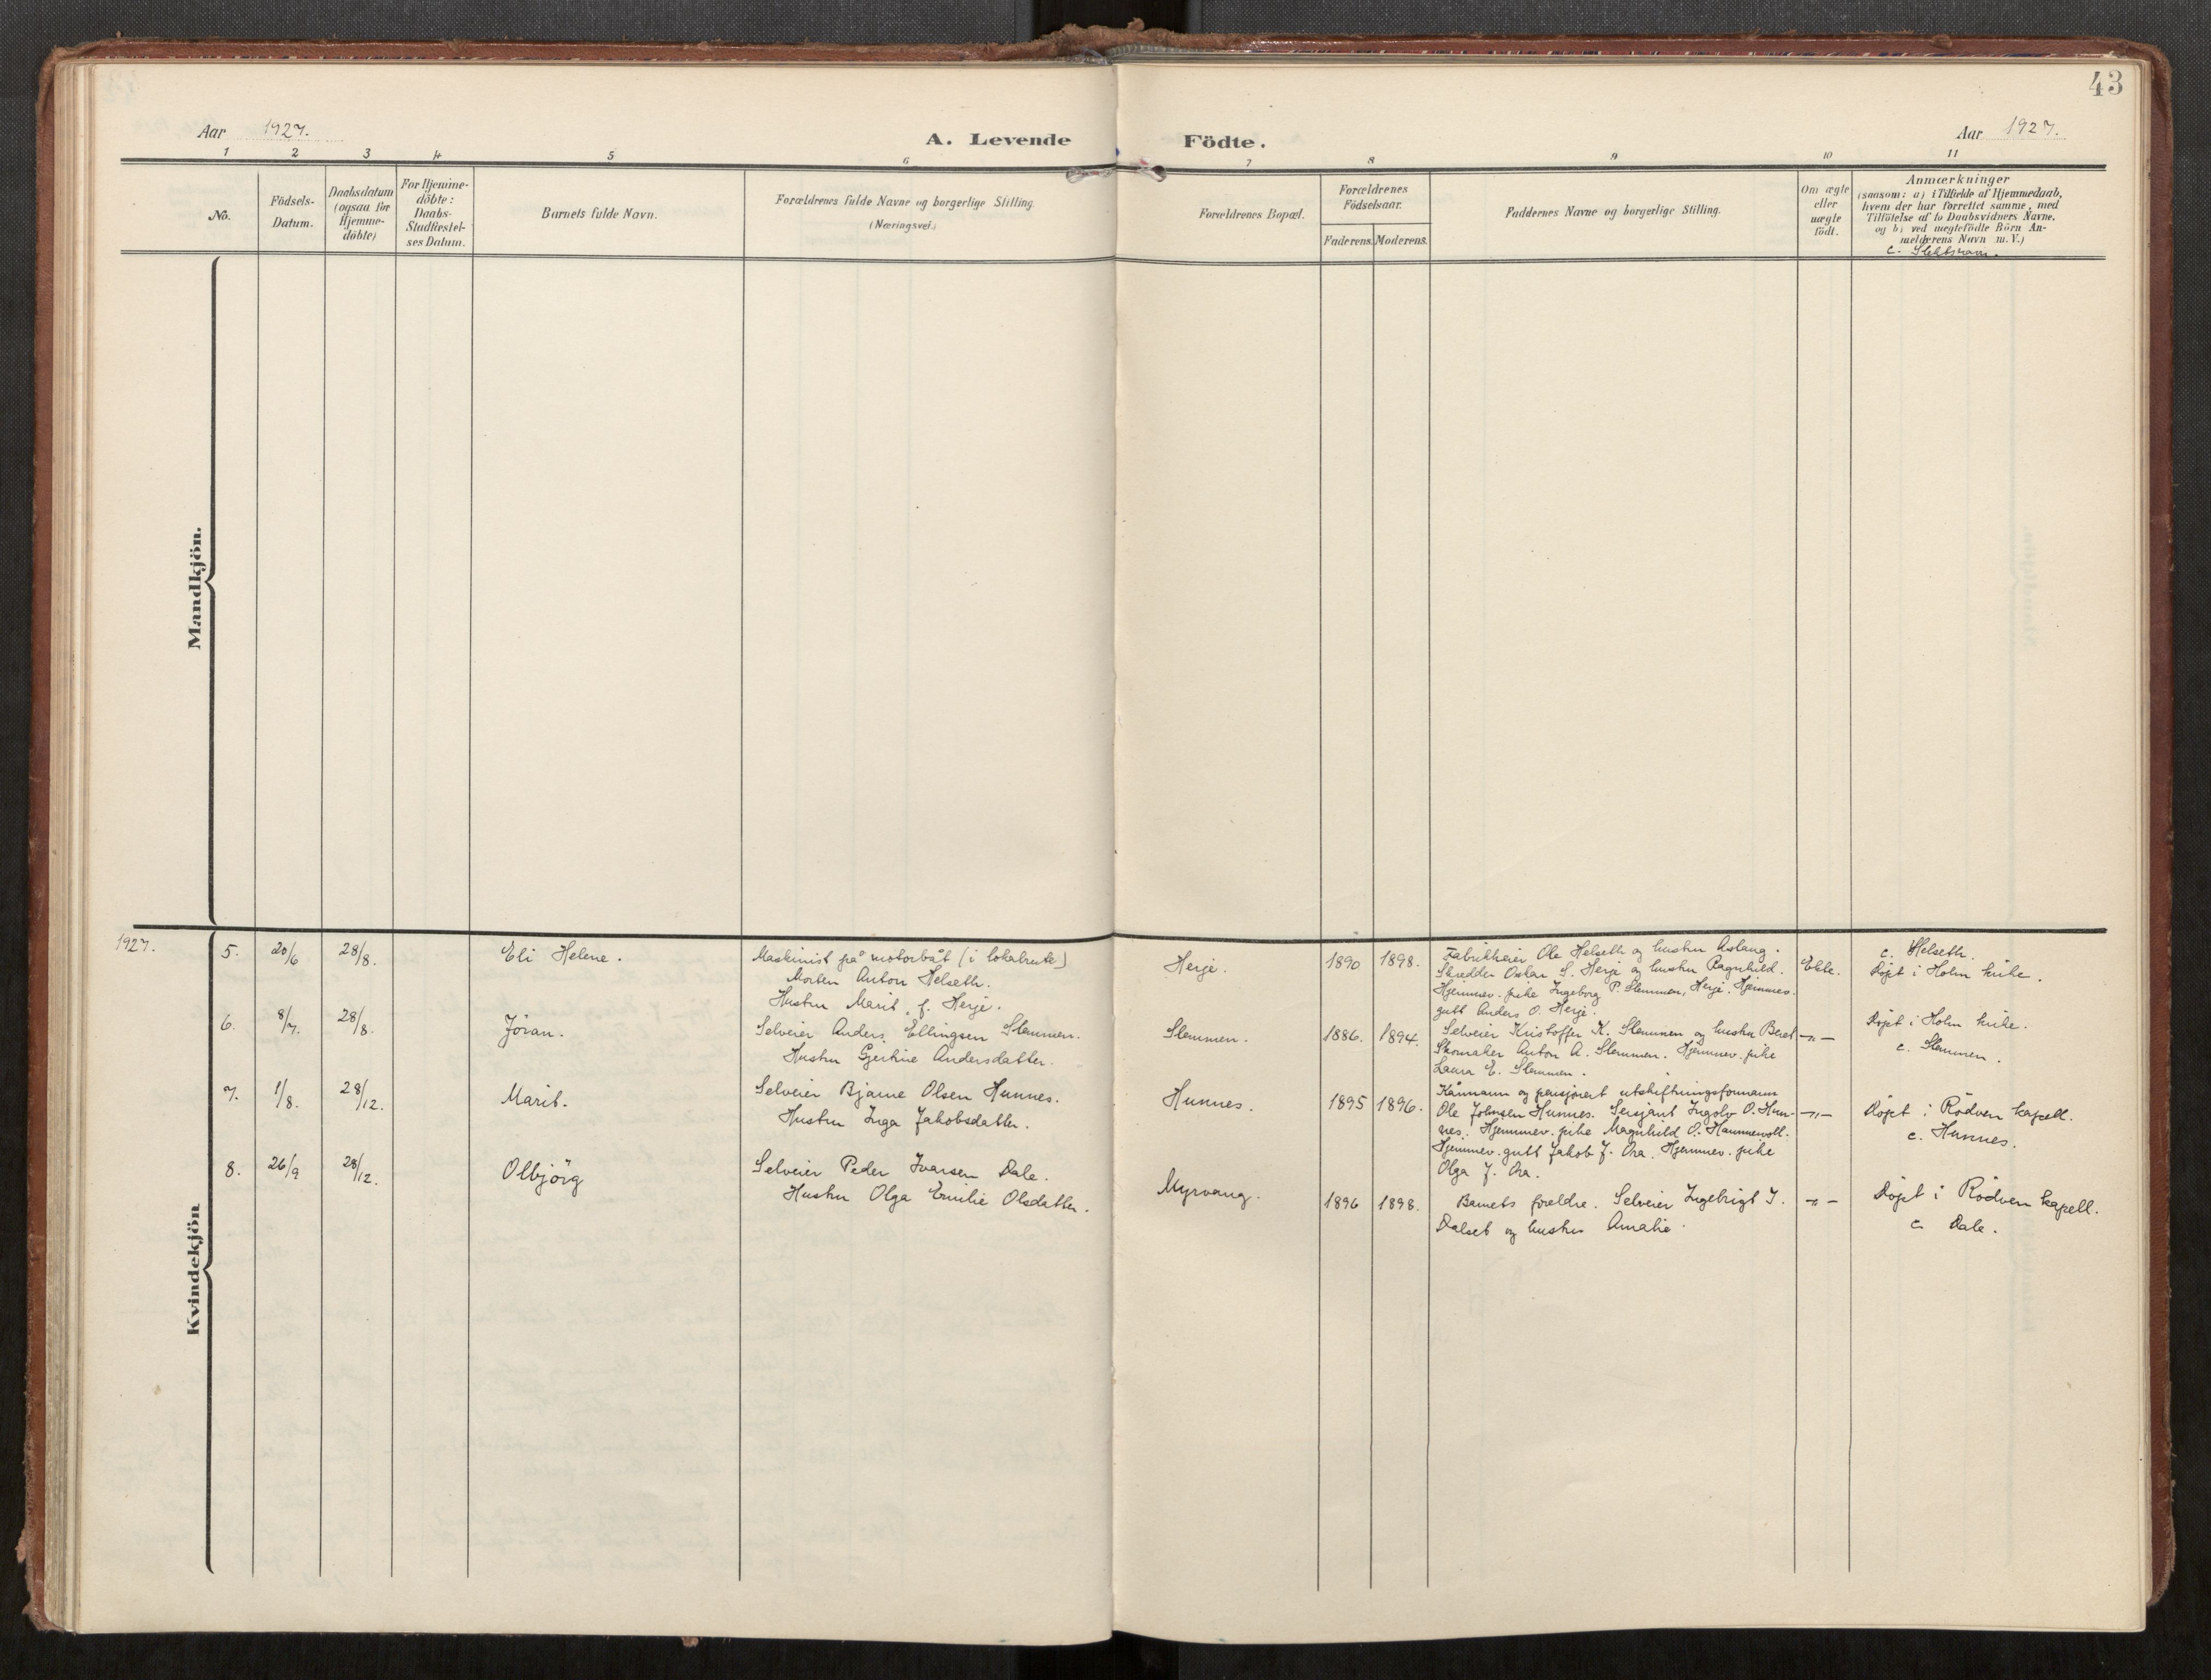 43
Aar 1927.
A. Levende Födte.
Aar 1927.
1 2 3 4 5 6 7 8 9 10 11
No.
Födsels-
Datum.
Daabsdatum
(ogsaa for
Hjemme-
döbte)
For Hjemme-
döbte:
Daabs-
Stadfæstel-
ses Datum.
Barnets fulde Navn.
Forældrenes fulde Navne og borgerlige Stilling
(Næringsvei.)
Forældrenes Bopæl.
Forældrenes
Födselsaar.
Faderens. Moderens.
Faddernes Navne og borgerlige Stilling.
Om ægte
eller
uægte
födt.
Anmærkninger
(saasom: a) i Tilfælde af Hjemmedaab,
hvem der har forrettet samme, med
Tilföielse af to Daabsvidners Navne.
og b) ved uægtefödte Börn An-
melderens Navn m. V.)
c. Slektsnavn.
Mandkjön.
Kvindekjön
1927.
5.
20/6
28/8.
Eli Helene.
Maskinist på motorbåt (i lokalrute)
Morten Anton Helseth.
Hustru Marit, f. Herje.
Herje.
1890
1898.
Fabrikkeier Ole Helseth og hustru Aslaug.
Skredder Oskar S. Herje og hustru Ragnhild.
Hjemmev. pike Ingeborg P. Slemmen, Herje. Hjemmev.
gutt Anders O. Herje.
Ekte.
c. Helseth.
Döpt i Holm kirke.
6.
8/7.
28/8.
Jöran.
Selveier Anders Ellingsen Slemmen.
Hustru Gjertine Andersdatter.
Slemmen.
1886.
1894.
Selveier Kristoffer K. Slemmen og hustru Beret
Skomaker Anton A. Slemmen. Hjemmev. pike
Laura E. Slemmen.
-"-
Döpt i Holm kirke.
c. Slemmen.
7.
1/8.
28/12.
Marit.
Selveier Bjarne Olsen Hunnes.
Hustru Inga Jakobsdatter.
Hunnes.
1895
1896.
Kårmann og pensjonert utskiftningsformann
Ole Johnsen Hunnes. Sersjant Ingolv O. Hun-
nes. Hjemmev. pike Magnhild O. Hammervoll.
Hjemmev. gutt Jakob J. Ora. Hjemmev. pike
Olga J. Ora.
-"-
Döpt i Rödven kapell.
c. Hunnes.
8.
26/9
28/12.
Olbjörg
Selveier Peder Ivarsen Dale.
Hustru Olga Emilie Olsdatter.
Myrvang.
1896
1898.
Barnets foreldre. Selveier Ingebrigt I.
Dalset og hustru Amalie.
-"-
Döpt i Rödven kapell.
c. Dale.